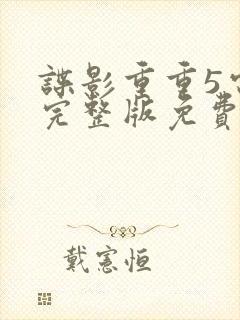 諜影重重5
完整版免費
戴憲恒